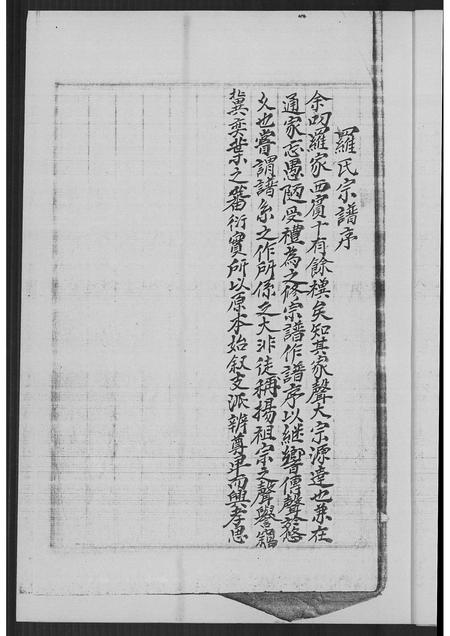 羅氏宗譜序
余叨羅家西賓十有餘穫矣知其家聲大宗源遠也兼在
通家忘愚陋受禮為之修宗譜作譜序以継響傳聲於悠
久也嘗謂譜系之作所係之大非徒稱揚祖宗之聲譽
冀奕葉之蕃衍實所以原本始叙支派辨尊卑而興孝思